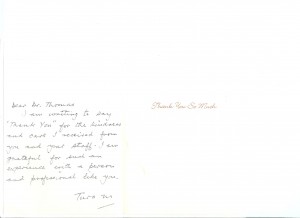 Dear Dr. Thomas
I am writing to say
"Thank You" for the kindness
and care I received from
you and your staff. I am
grateful for such an
experience with a person
and professional like you.
Thank You So Much